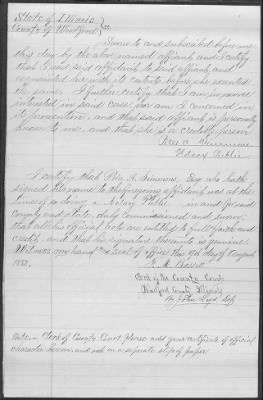 State of Illinois
County of Woodford } ss
Sworn to and subscribed before me
this day by the above named affiant and I certify
that I read said affidavit to said affiant and
acquainted her with its contents before she executed
the same. I further certify that I am in nowise
interested in said case, nor am I concerned in
its prosecution, and that said affiant is personally
known to me, and that she is a credible person
Notary Public
I certify that
signed his name to the foregoing affidavit was at the
time of so doing a Notary Public in and for said
County and State, duly commissioned and sworn,
that all his official acts are entitled to full faith and
credit, and that his signature thereunto is genuine.
Witness my hand and seal of office this day of August
188
Clerk of the County Court
Woodford County Illinois
By Dep
Note. Clerk of County Court please add your certificate of official
character hereon, and not on a separate slip of paper